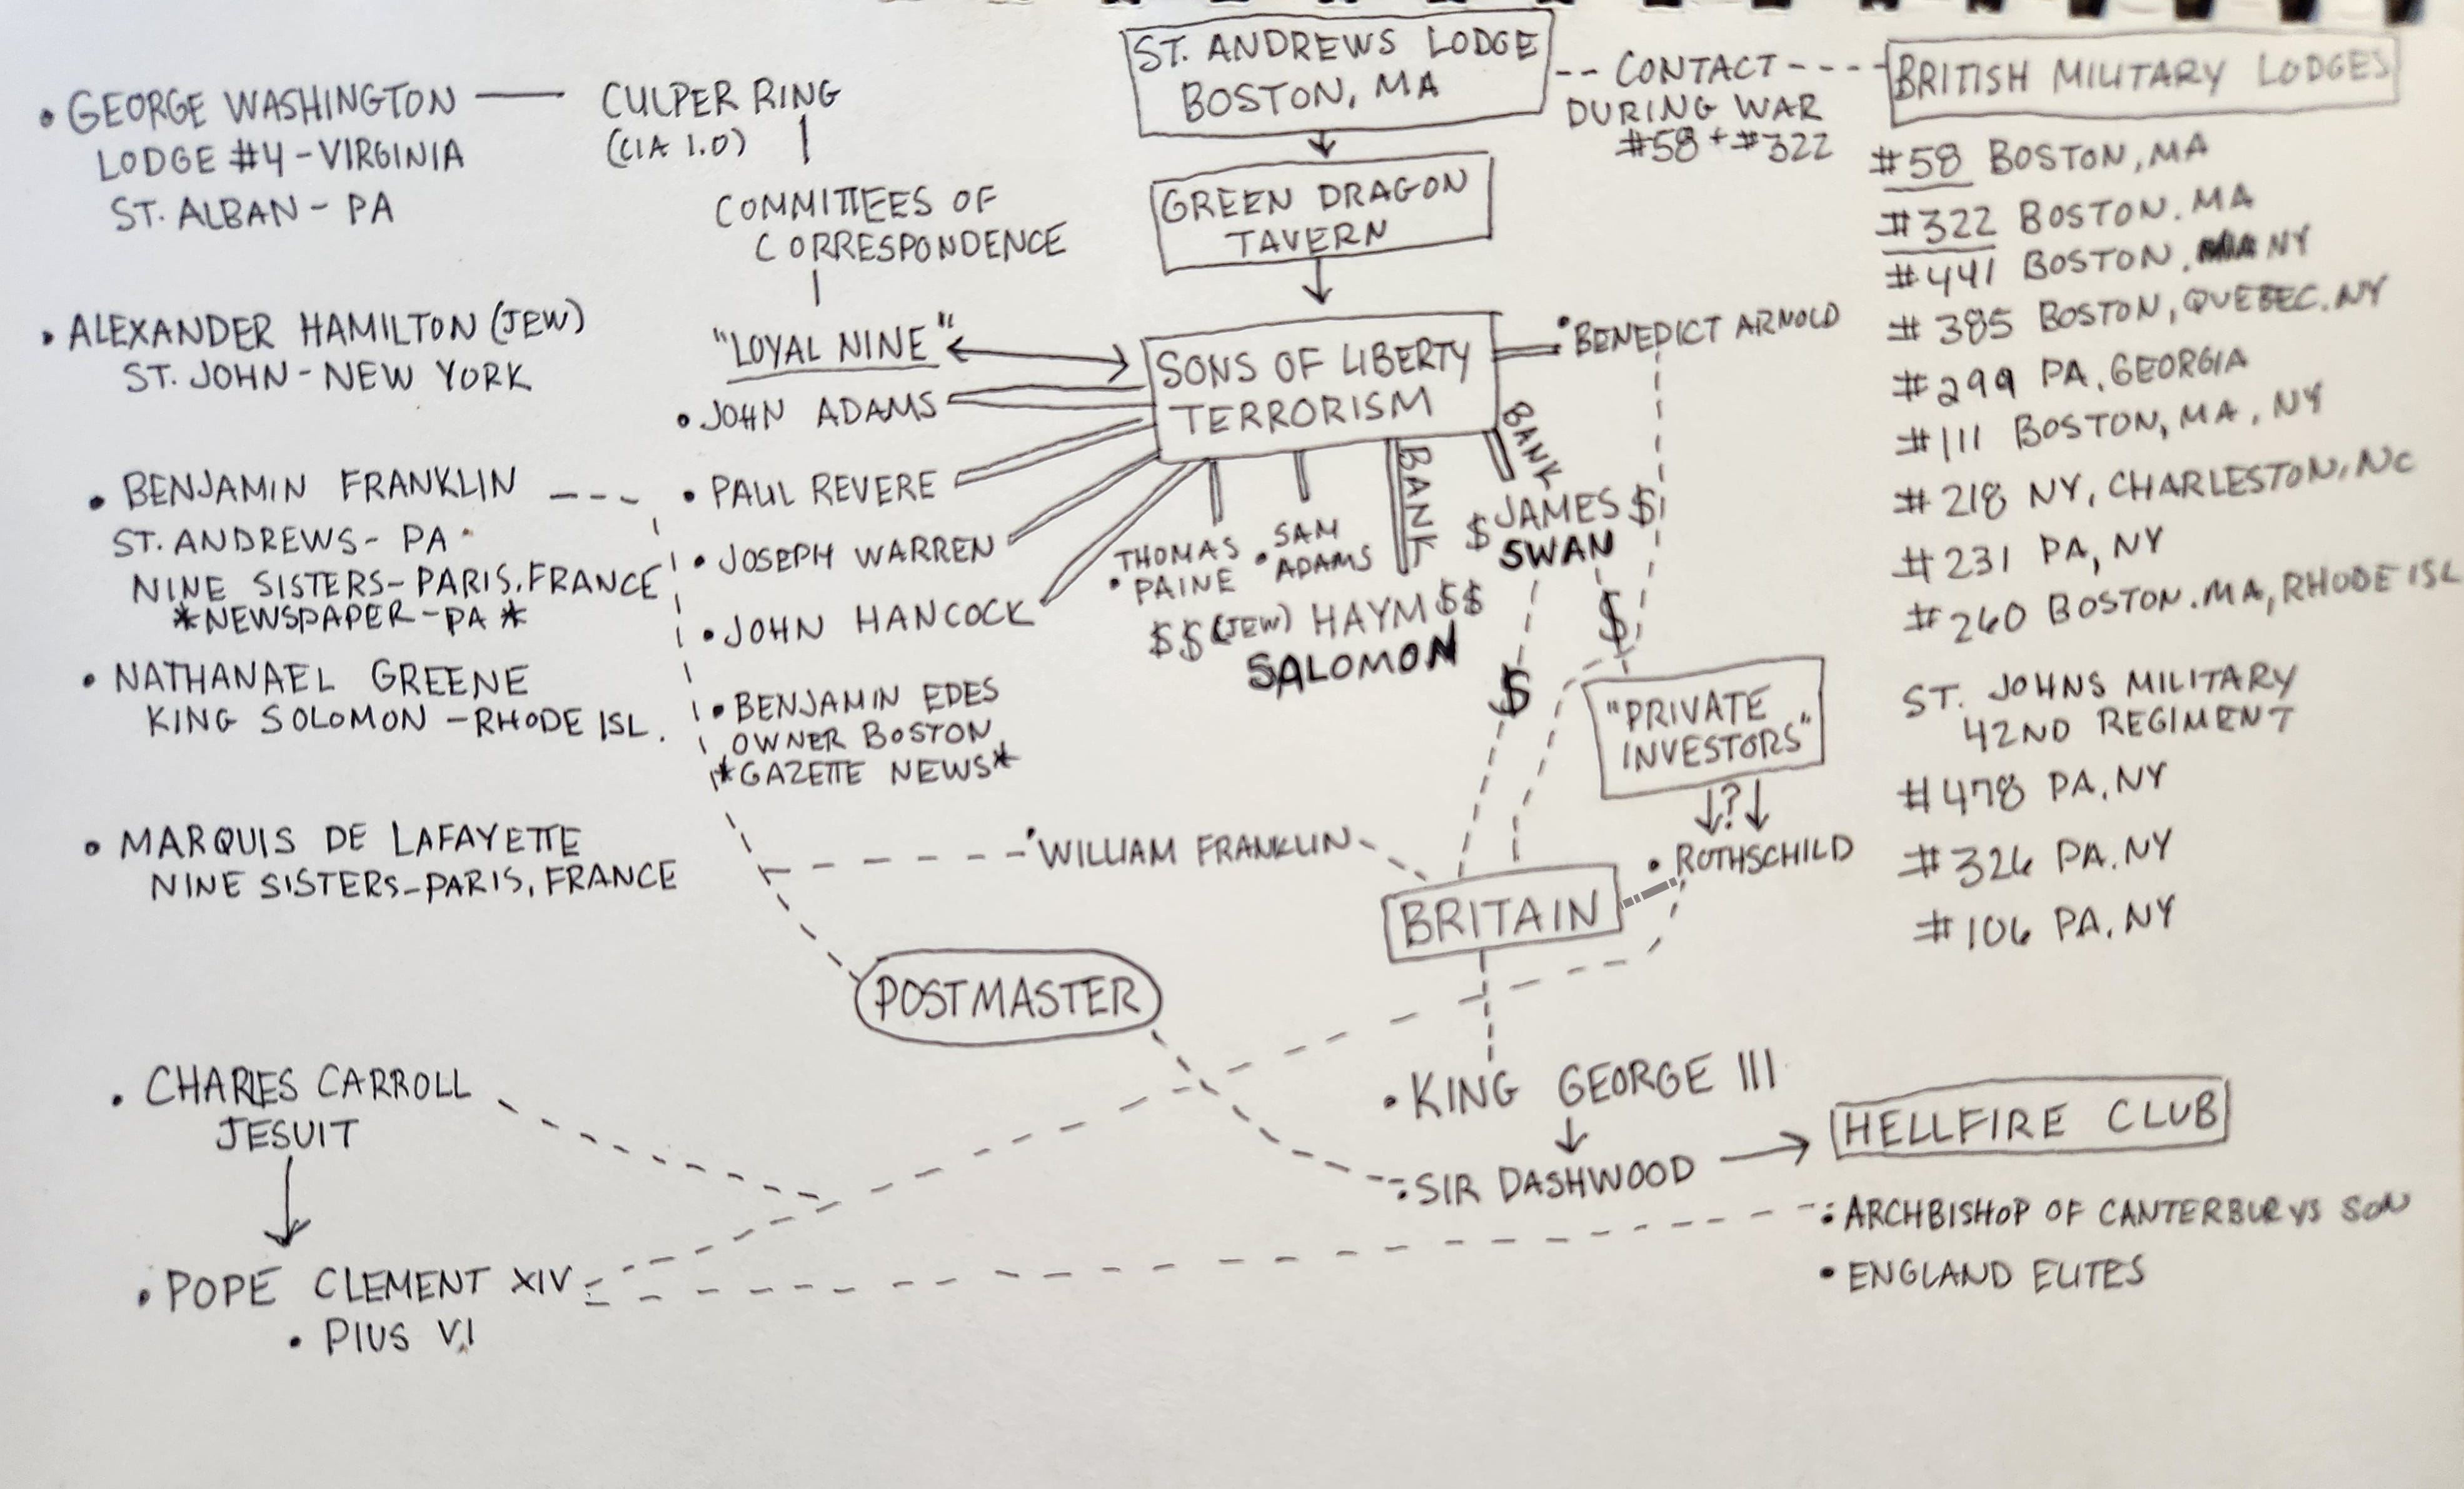 ST. ANDREWS LODGE
BOSTON, MA
-- CONTACT ---
DURING WAR
#58 + #322
BRITISH MILITARY LODGES
#58 BOSTON, MA
#322 BOSTON. MA
#441 BOSTON, NY
#385 BOSTON, QUEBEC. NY
#299 PA, GEORGIA
#111 BOSTON, MA, NY
#218 NY, CHARLESTON, NC
#231 PA, NY
#260 BOSTON. MA, RHODE ISL
ST. JOHNS MILITARY
42ND REGIMENT
#478 PA, NY
#326 PA. NY
#106 PA, NY
• GEORGE WASHINGTON
LODGE #4 - VIRGINIA
ST. ALBAN - PA
CULPER RING
(CIA 1.0)
COMMITTEES OF
CORRESPONDENCE
"LOYAL NINE"
GREEN DRAGON
TAVERN
SONS OF LIBERTY
TERRORISM
• BENEDICT ARNOLD
• ALEXANDER HAMILTON (JEW)
ST. JOHN - NEW YORK
• JOHN ADAMS
• PAUL REVERE
• JOSEPH WARREN
• JOHN HANCOCK
• BENJAMIN EDES
OWNER BOSTON
*GAZETTE NEWS*
THOMAS
• PAINE
SAM
• ADAMS
BANK
BANK
$$ (JEW) HAYM $$
SALOMON
$ JAMES $
SWAN
$
$
• BENJAMIN FRANKLIN
ST. ANDREWS - PA
NINE SISTERS - PARIS, FRANCE
*NEWSPAPER - PA*
• NATHANAEL GREENE
KING SOLOMON - RHODE ISL.
• MARQUIS DE LAFAYETTE
NINE SISTERS - PARIS, FRANCE
"PRIVATE
INVESTORS"
?
• ROTHSCHILD
• WILLIAM FRANKLIN
BRITAIN
POSTMASTER
• CHARLES CARROLL
JESUIT
• POPE CLEMENT XIV
• PIUS VI
• KING GEORGE III
• SIR DASHWOOD
HELLFIRE CLUB
• ARCHBISHOP OF CANTERBURYS SON
• ENGLAND ELITES